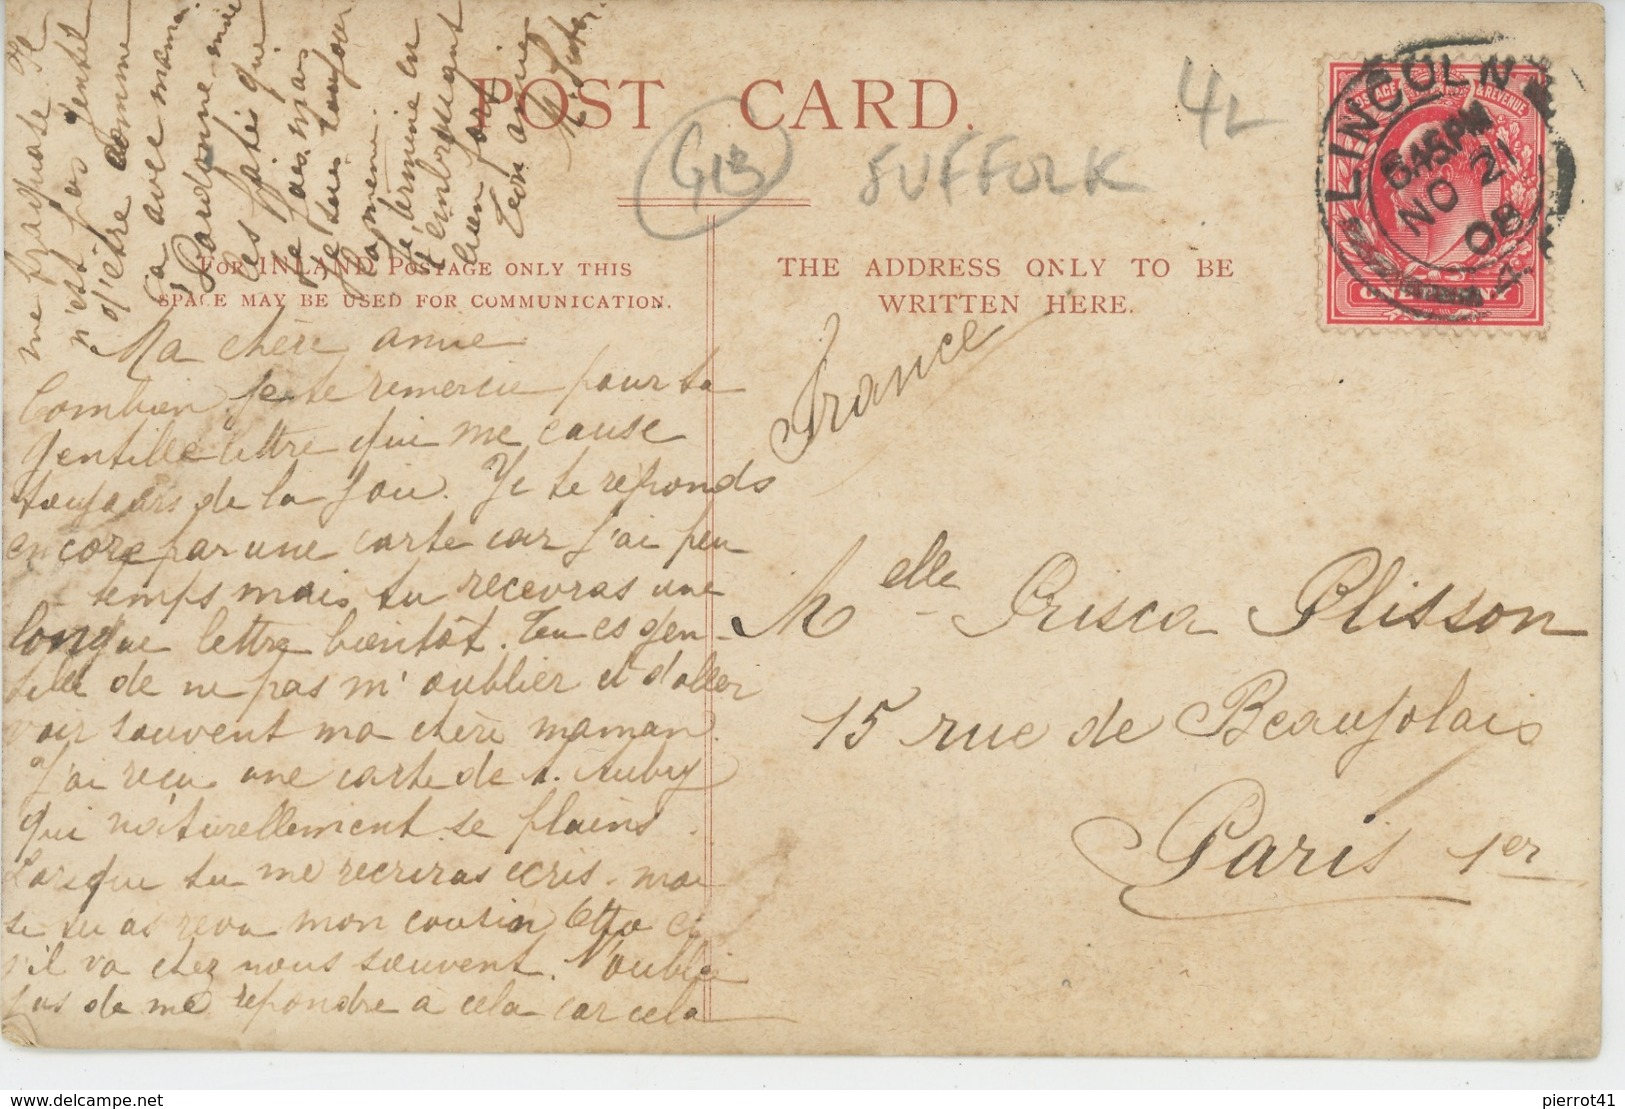 POST CARD.
GB
SUFFOLK
4L
LINCOLN
6.45PM
NO 21
08
POSTAGE & REVENUE
ONE PENNY
FOR INLAND POSTAGE ONLY THIS
SPACE MAY BE USED FOR COMMUNICATION.
THE ADDRESS ONLY TO BE
WRITTEN HERE.
Ma chère amie
Combien je te remercie pour ta
gentille lettre qui me cause
toujours de la joie. Je te reponds
encore par une carte car j'ai peu
temps mais tu recevras une
longue lettre bientôt. Tu es gen-
tille de ne pas m'oublier et d'aller
voir souvent ma chère maman.
J'ai reçu une carte de A. Aubry
qui naturellement se plains.
Lorsque tu me recriras ecris-moi
si tu as revu mon cousin et
s'il va chez nous souvent. N'oublie
pas de me repondre à cela car cela
me fracasse. Il
n'est pas gentil
d'être comme
ça avec maman.
Pardonne-moi
ces pâtés qui
je fais. mais
je suis toujours
la même.
Je termine en
t'embrassant
bien fort
Ton amie
France
Melle Prisca Plisson
15 rue de Beaujolais
Paris 1er
pierrot41
delcampe.net